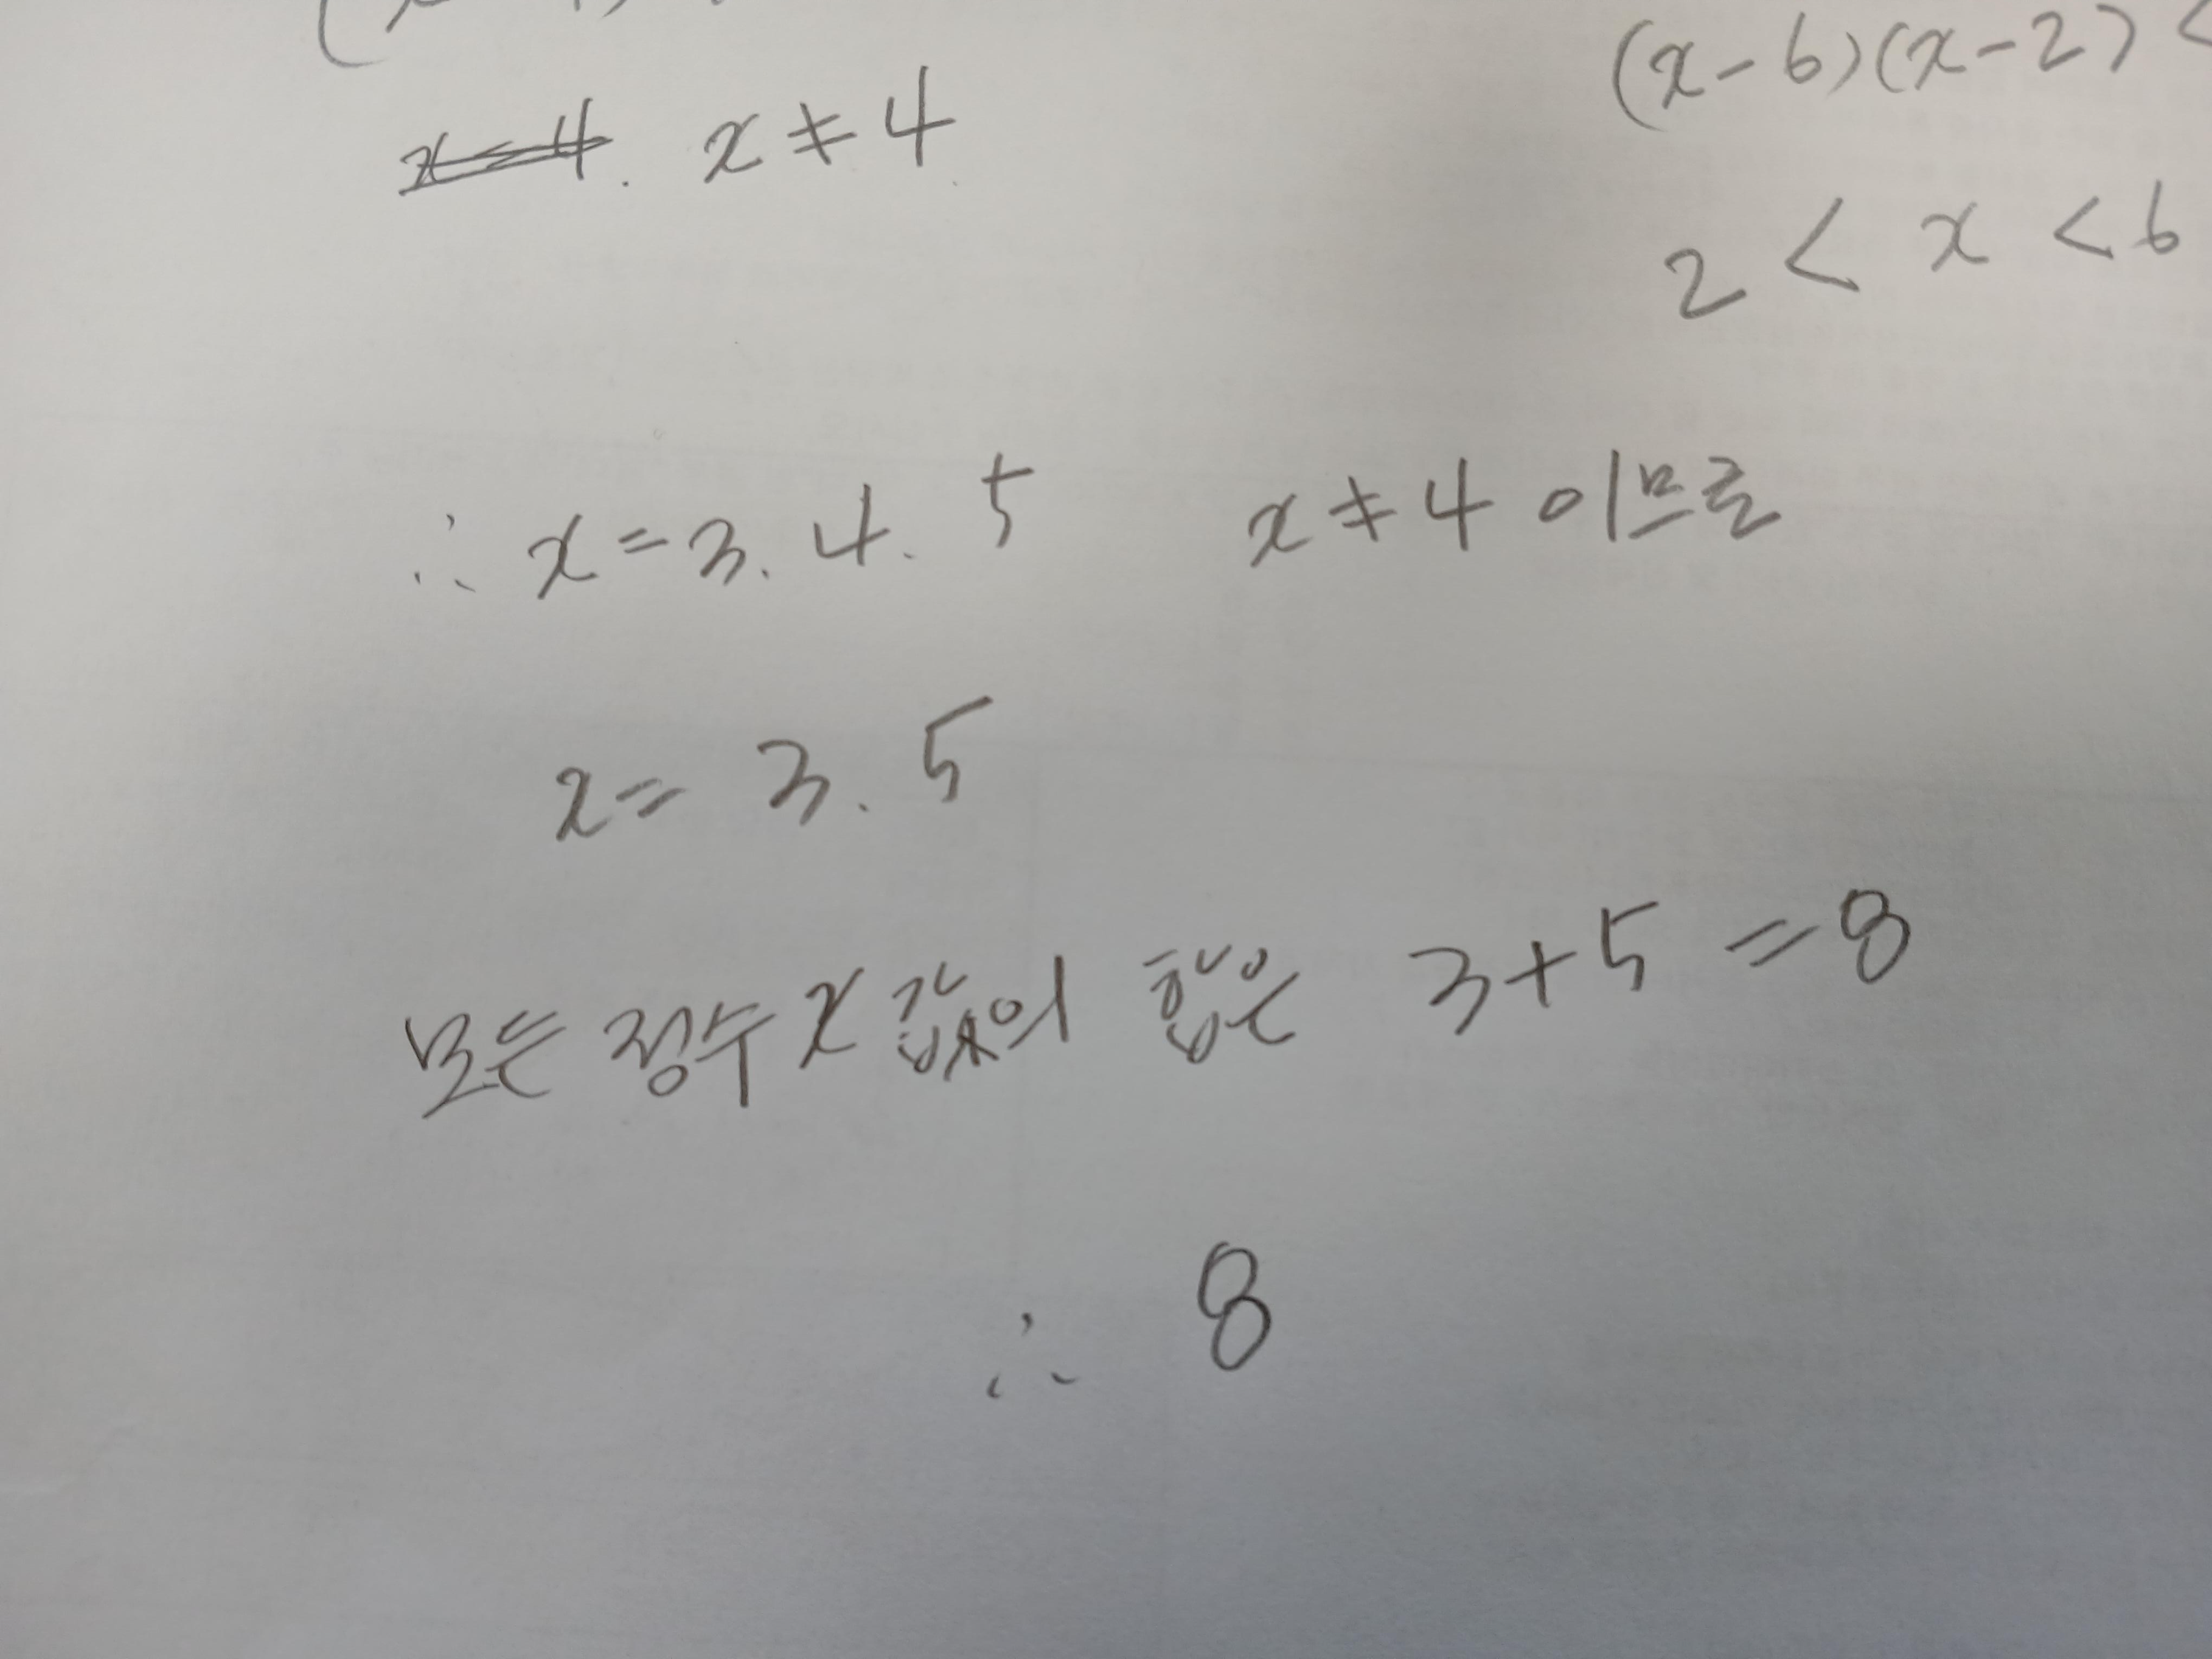 (x-6)(x-2)<
x≠4
2 < x < 6
∴ x=3. 4. 5 x≠4 이므로
x= 3. 5
모든 정수 x 값의 합은 3+5=8
∴ 8